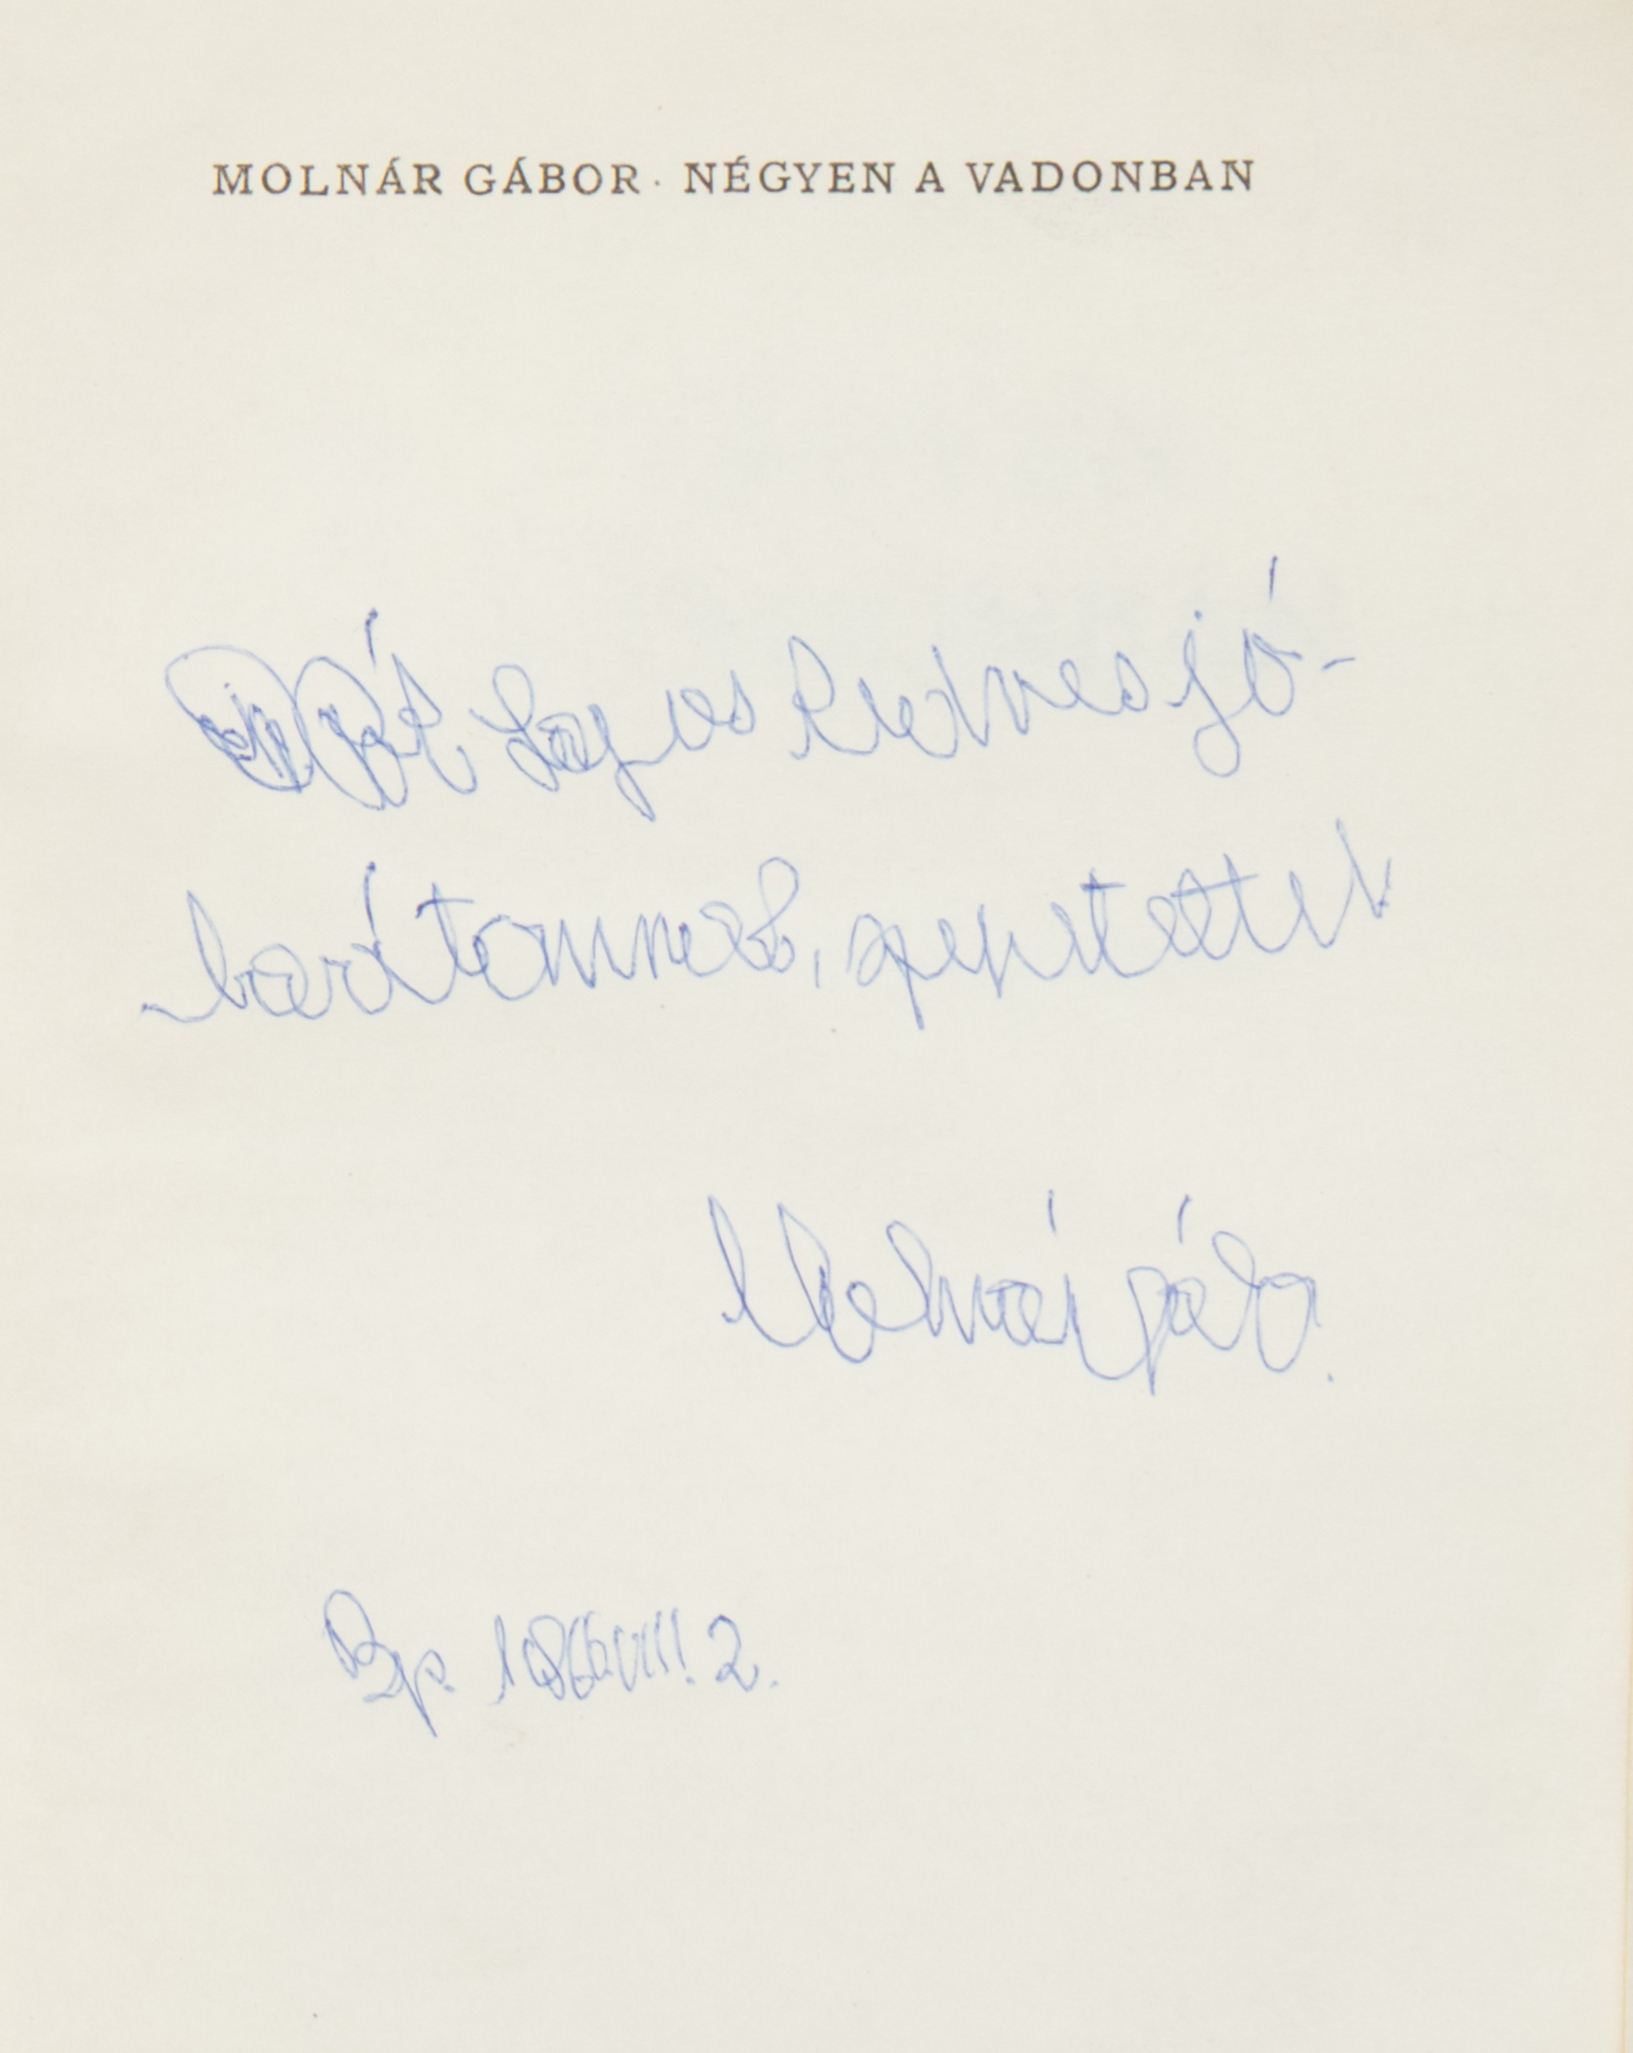 MOLNÁR GÁBOR · NÉGYEN A VADONBAN
Lajos kedves jó-
barátomnak, szeretettel
Molnár Gábor.
Bp. 2.